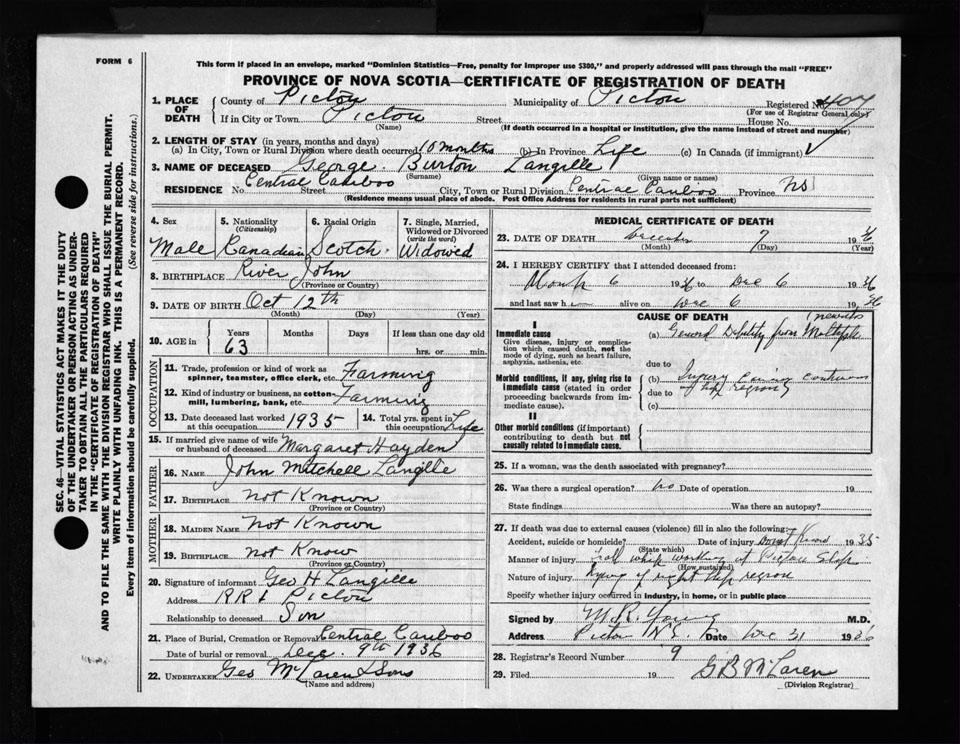 FORM 6
This form if placed in an envelope, marked "Dominion Statistics—Free, penalty for improper use $300," and properly addressed will pass through the mail "FREE"
PROVINCE OF NOVA SCOTIA—CERTIFICATE OF REGISTRATION OF DEATH
1. PLACE OF DEATH County of Pictou Municipality of Pictou Registered No.
(For use of Registrar General only)
If in City or Town Pictou Street House No.
(Name) (If death occurred in a hospital or institution, give the name instead of street and number)
2. LENGTH OF STAY (in years, months and days)
(a) In City, Town or Rural Division where death occurred 10 months (b) In Province Life (c) In Canada (if immigrant)
3. NAME OF DECEASED George Burton Langille
(Surname) (Given name or names)
RESIDENCE No. Central Cariboo Street City, Town or Rural Division Central Cariboo Province NS
(Residence means usual place of abode. Post Office Address for residents in rural parts not sufficient)
4. Sex 5. Nationality (Citizenship) 6. Racial Origin 7. Single, Married, Widowed or Divorced (write the word)
Male Canadian Scotch Widowed
8. BIRTHPLACE River John
(Province or Country)
9. DATE OF BIRTH Oct 12th
(Month) (Day) (Year)
10. AGE in Years Months Days If less than one day old
63 hrs. or min.
OCCUPATION
11. Trade, profession or kind of work as spinner, teamster, office clerk, etc. Farming
12. Kind of industry or business, as cotton-mill, lumbering, bank, etc. Farming
13. Date deceased last worked at this occupation 1935 14. Total yrs. spent in this occupation Life
15. If married give name of wife or husband of deceased Margaret Hayden
FATHER
16. NAME John Mitchell Langille
17. BIRTHPLACE not Known
(Province or Country)
MOTHER
18. MAIDEN NAME not Known
19. BIRTHPLACE not Know
(Province or Country)
20. Signature of informant Geo H Langille
Address RR1 Pictou
Relationship to deceased Son
21. Place of Burial, Cremation or Removal Central Cariboo
Date of burial or removal Dec. 9th 1936
22. UNDERTAKER Geo McLaren & Sons
(Name and address)
MEDICAL CERTIFICATE OF DEATH
23. DATE OF DEATH December 7 1936
(Month) (Day) (Year)
24. I HEREBY CERTIFY that I attended deceased from:
6 1936 to Dec 6 1936
and last saw h alive on Dec 6 1936
CAUSE OF DEATH
I
Immediate cause
Give disease, injury or complication which caused death, not the mode of dying, such as heart failure, asphyxia, asthenia, etc.
(a) General Debility from Multiple
due to
Morbid conditions, if any, giving rise to immediate cause (stated in order proceeding backwards from immediate cause).
(b) Injury
due to hip region
(c)
II
Other morbid conditions (if important) contributing to death but not causally related to immediate cause.
25. If a woman, was the death associated with pregnancy?
26. Was there a surgical operation? no Date of operation 19
State findings Was there an autopsy?
27. If death was due to external causes (violence) fill in also the following:
Accident, suicide or homicide? Date of injury 1935
(State which)
Manner of injury fall while working at Pictou Shop
(How sustained)
Nature of injury Injury of right hip region
Specify whether injury occurred in industry, in home, or in public place
Signed by M.R. Young M.D.
Address Pictou N.S. Date Dec 31 1936
28. Registrar's Record Number 9
29. Filed 19 G B McLaren
(Division Registrar)
SEC. 46—VITAL STATISTICS ACT MAKES IT THE DUTY
OF THE UNDERTAKER OR PERSON ACTING AS UNDER-
TAKER TO OBTAIN ALL THE PARTICULARS REQUIRED
IN THE "CERTIFICATE OF REGISTRATION OF DEATH"
AND TO FILE THE SAME WITH THE DIVISION REGISTRAR WHO SHALL ISSUE THE BURIAL PERMIT.
WRITE PLAINLY WITH UNFADING INK. THIS IS A PERMANENT RECORD.
Every item of information should be carefully supplied. (See reverse side for instructions.)